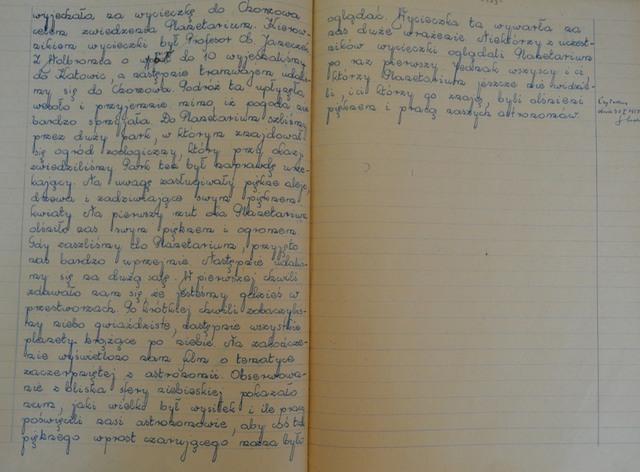 wyjechała na wycieczkę do Chorzowa
celem zwiedzenia Planetarium. Kierow-
nikiem wycieczki był Profesor Ob. Janeczek
Z Wolbromia o wpół do 10 wyjechaliśmy
do Katowic, a następnie tramwajem udaliś-
my się do Chorzowa. Podróż ta upłynęła
wesoło i przyjemnie, mimo, iż pogoda nie
bardzo sprzyjała. Do Planetarium szliśmy
przez duży park, w którym znajdował
się ogród zoologiczny, który przy okazji
zwiedziliśmy Park ten był naprawdę urze-
kający. Na uwagę zasługiwały piękne aleje,
drzewa i zadziwiające swym pięknem
kwiaty Na pierwszy rzut oka Planetarium
olśniło nas swym pięknem i ogromem.
Gdy zaszliśmy do Planetarium, przyjęto
nas bardzo uprzejmie Następnie udaliś-
my się na dużą salę. W pierwszej chwili
zdawało nam się że jesteśmy gdzieś w
przestworzach. Po krótkiej chwili zobaczyliś-
my niebo gwiaździste, następnie wszystkie
planety krążące po niebie Na zakończe-
nie wyświetlono nam film o tematyce
zaczerpniętej z astronomii. Obserwowa-
nie z bliska sfery niebieskiej pokazało
nam, jaki wielki był wysiłek i ile pracy
poświęcili nasi astronomowie, aby coś tak
pięknego wprost czarującego można było
oglądać. Wycieczka ta wywarła na
nas duże wrażenie. Niektórzy z uczest-
ników wycieczki oglądali Planetarium
po raz pierwszy jednak wszyscy i ci
którzy Planetarium jeszcze nie widzie-
li, i ci którzy go znają, byli olśnieni
pięknem i pracą naszych astronomów.
Czytałem